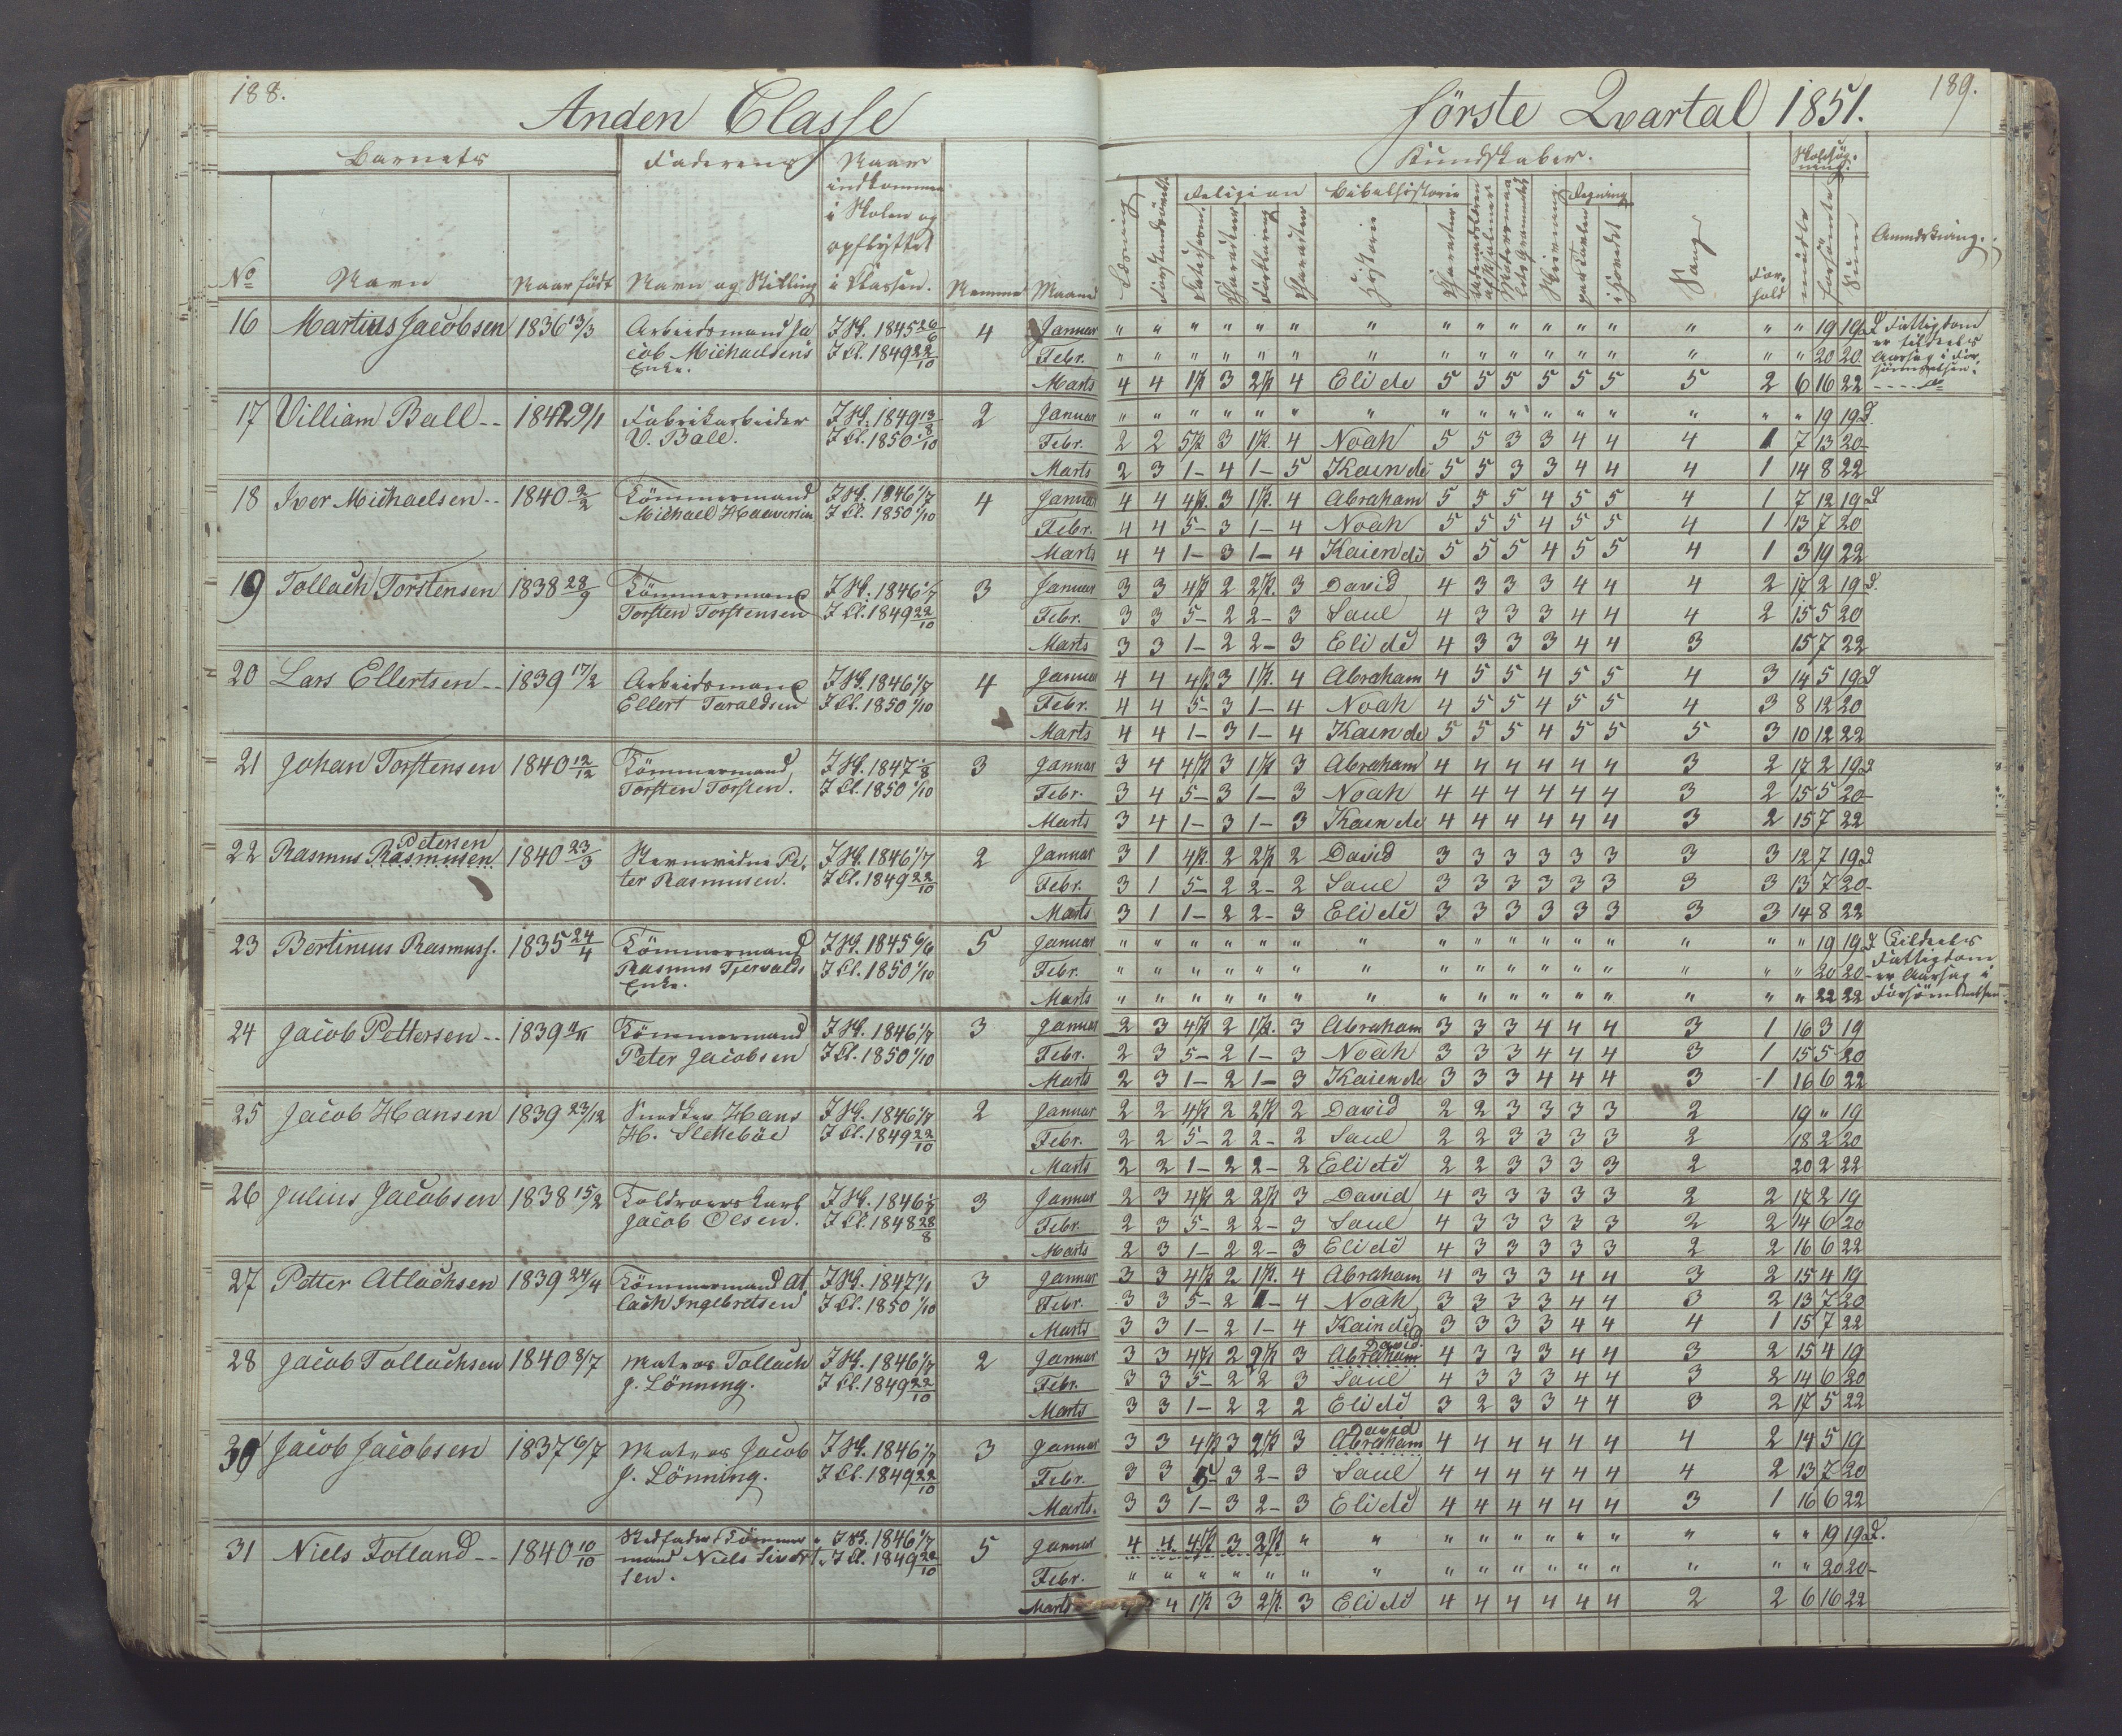 188.
Anden Classe
Barnets Faderens Naar
indkommen
i Skolen og
opflyttet
No Navn Naar født Navn og Stilling i Klassen. Nemme Maaned
16 Martius Jacobsen 1836 13/3 Arbeidsmand Ja I Sk. 1845 26/6 4 Januar
cob Michaelsens I Cl. 1849 22/10 Febr.
Enke. Marts
17 Villiam Ball -- 1842 9/1 Fabrikarbeider I Sk. 1849 13/8 2 Januar
V. Ball. I Cl. 1850 1/10 Febr.
Marts
18 Iver Michaelsen -- 1840 2/2 Tömmermand I Sk. 1846 1/7 4 Januar
Michael Haaversen I Cl. 1850 1/10 Febr.
Marts
19 Tollach Torstensen 1838 28/9 Tömmermand I Sk. 1846 1/7 3 Januar
Torsten Torstensen I Cl. 1849 22/10 Febr.
Marts
20 Lars Ellertsen -- 1839 17/2 Arbeidsmand I Sk. 1846 1/7 4 Januar
Ellert Taraldsen I Cl. 1850 1/10 Febr.
Marts
21 Johan Torstensen 1840 12/12 Tömmermand I Sk. 1847 1/8 3 Januar
Torsten Torsten. I Cl. 1850 1/10 Febr.
Marts
Petersen
22 Rasmus Rasmusen 1840 23/3 Pe- I Sk. 1846 1/7 2 Januar
ter Rasmusen. I Cl. 1849 22/10 Febr.
Marts
23 Bertinius Rasmuss. 1835 24/4 Tömmermand I Sk. 1845 6/6 5 Januar
Rasmus Tjervalds I Cl. 1850 1/10 Febr.
Enke. Marts
24 Jacob Pettersen -- 1839 Tömmermand I Sk. 1846 1/7 3 Januar
Peter Jacobsen I Cl. 1850 1/10 Febr.
Marts
25 Jacob Hansen 1839 23/12 Snedker Hans I Sk. 1846 1/7 2 Januar
H. Slettebøe I Cl. 1849 22/10 Febr.
Marts
26 Julius Jacobsen 1838 15/2 Toldroerskarl I Sk. 1846 3 Januar
Jacob Olsen. I Cl. 1848 28/8 Febr.
Marts
27 Petter Atlachsen 1839 24/4 Tömmermand At I Sk. 1847 1/1 3 Januar
lach Ingebretsen I Cl. 1850 1/10 Febr.
Marts
28 Jacob Tollachsen 1840 8/7 Matros Tollach I Sk. 1846 1/7 2 Januar
J. Lönning. I Cl. 1849 22/10 Febr.
Marts
30 Jacob Jacobsen 1837 6/7 Matros Jacob I Sk. 1846 1/7 3 Januar
J. Lönning. I Cl. 1849 22/10 Febr.
Marts.
31 Niels Tolland -- 1840 10/10 Stedfader Tömmer I Sk. 1846 1/7 5 Januar
mand Niels Sivert I Cl. 1849 22/10 Febr.
sen. Marts
189.
første Qvartal 1851.
Kundskaber. Skolesøg-
ning.
Religion Bibelhistorie Regning
Læsning Forstandsøvelse Catechism. Charakter Forklaring Charakter Historie Charakter Skrivning paa Tavlen i Hovedet Sang For-
hold mødte forsømte Sum Anmærkning.
" " " " " " " " " " " " " " " " 19 19 d Fattigdom
er tildeels
" " " " " " " " " " " " " " " " 20 20 Aarsag i For
sømmelsen.
4 4 1ß 3 2ß 4 Eli dé 5 5 5 5 5 5 5 2 6 16 22
" " " " " " " " " " " " " " " " 19 19 d.
2 2 5ß 3 1ß. 4 Noah 5 5 3 3 4 4 4 1 7 13 20-
2 3 1- 4 1- 5 Kain dé 5 5 3 3 4 4 4 1 14 8 22
4 4 4ß. 3 1ß. 4 Abraham 5 5 5 4 5 5 4 1 7 12 19 d
4 4 5- 3 1- 4 Noah 5 5 5 4 5 5 4 1 13 7 20
4 4 1- 3 1- 4 Kaien dé 5 5 5 4 5 5 4 1 3 19 22
3 3 4ß 2 2ß. 3 David 4 3 3 3 4 4 4 2 17 2 19 d.
3 3 5- 2 2- 3 Saul 4 3 3 3 4 4 4 2 15 5 20
3 3 1- 2 2- 3 Eli dé 4 3 3 3 4 4 3 15 7 22
4 4 4ß 3 1ß. 4 Abraham 4 5 5 4 5 5 4 3 14 5 19 d
4 4 5- 3 1- 4 Noah 4 5 5 4 5 5 4 3 8 12 20
4 4 1- 3 1- 4 Kain dé 5 5 5 4 5 5 5 3 10 12 22
3 4 4ß 3 1ß 3 Abraham 4 4 4 4 4 4 3 2 17 2 19 d
3 4 5- 3 1- 3 Noah 4 4 4 4 4 4 3 2 15 5 20-
3 4 1- 3 1- 3 Kain dé 4 4 4 4 4 4 3 2 15 7 22
3 1 4ß. 2 2ß 2 David 3 3 3 3 3 3 3 3 12 7 19 d
3 1 5- 2 2- 2 Saul 3 3 3 3 3 3 3 3 13 7 20-
3 1 1- 2 2- 3 Eli dé 3 3 3 3 3 3 3 3 14 8 22
" " " " " " " " " " " " " " " " 19 19 d Tildeels
Fattigdom
" " " " " " " " " " " " " " " " 20 20- er Aarsag i
" " " " " " " " " " " " " " " " 22 22 Forsømmelsen
2 3 4ß 2 1ß. 3 Abraham 3 3 3 4 4 4 3 1 16 3 19
2 3 5- 2 1- 3 Noah 3 3 3 4 4 4 3 1 15 5 20
2 3 1- 2 1- 3 Kaien dé 3 3 3 4 4 4 3 1 16 6 22
2 2 4ß 2 2ß 2 David 2 2 3 3 3 3 2 19 " 19
2 2 5- 2 2- 2 Saul 2 2 3 3 3 3 2 18 2 20
2 2 1- 2 2- 2 Eli dé 2 2 3 3 3 3 2 20 2 22
2 3 4ß 2 2ß 3 David 4 3 3 3 3 3 2 2 17 2 19
2 3 5- 2 2- 3 Saul 4 3 3 3 3 3 2 2 14 6 20
2 3 1- 2 2- 3 Eli dé 4 3 3 3 3 3 2 2 16 6 22
3 3 4ß 2 1ß. 4 Abraham 4 3 3 3 4 4 3 2 15 4 19
3 3 5- 2 1- 4 Noah 3 3 3 3 4 4 3 2 13 7 20
3 3 1- 2 1- 4 Kain dé 3 3 3 3 4 4 4 1 15 7 22
David.
3 3 4ß 2 2ß 3 Abraham 4 3 3 3 4 4 3 2 15 4 19
3 3 5- 2 2 3 Saul 4 3 3 3 4 4 3 2 14 6 20
3 3 1- 2 2 2 Eli dé 3 2 3 3 4 4 3 2 17 5 22
David
3 3 4ß 3 2ß 3 Abraham 4 4 4 4 4 4 4 2 14 5 19
3 3 5- 3 2- 3 Saul 4 4 4 4 4 4 4 2 13 7 20
3 3 1- 3 2- 3 Eli dé 4 4 4 4 4 4 3 1 16 6 22
4 4 4ß 3 2ß " " " " " " " " " " " 19 19 d.
" " " " " " " " " " " " " " " " 20 20-
4 1ß 3 2ß. 3 Eli dé 4 4 4 4 4 4 2 2 6 16 22